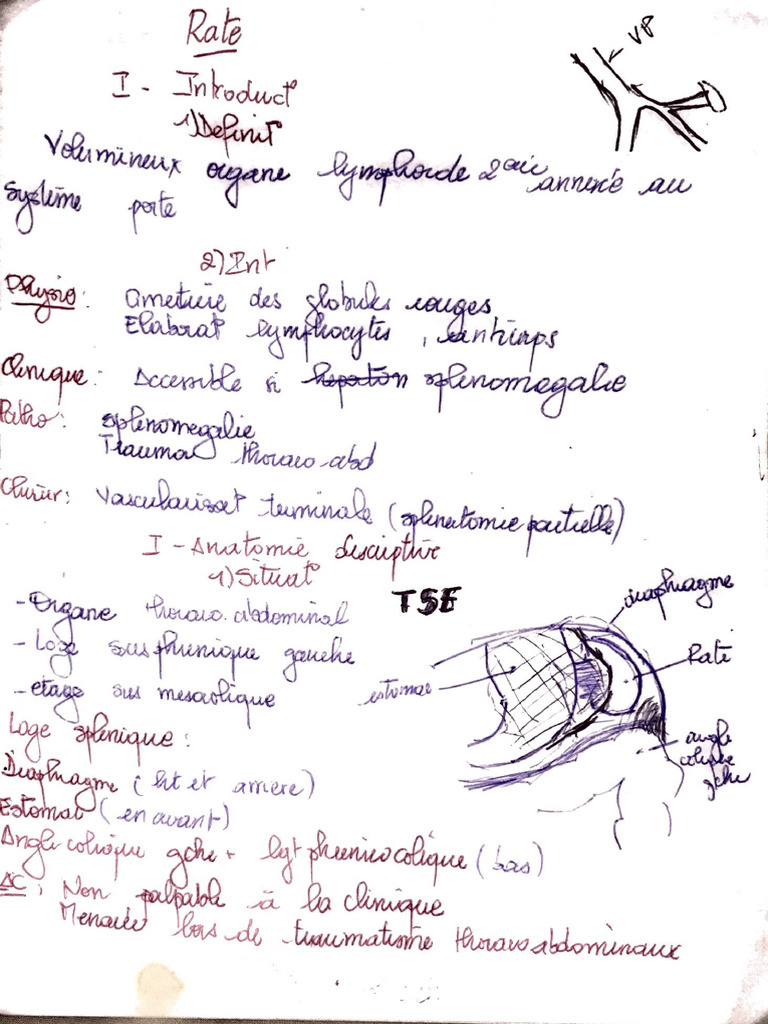 Rate
VP
I - Introduct°
1) Definit°
Volumineux organe lymphoïde 2aire annexé au
Système porte
2) Int
Physio: Cimetière des globules rouges
Elaborat° lymphocytes, anticorps
Clinique: Accessible si splénomegalie
Patho: splénomegalie
Trauma thoraco-abd
Chirur: Vascularisat° terminale (splénectomie partielle)
I - Anatomie descriptive
1) Situat°
TSE
- Organe thoraco-abdominal
- Loge sous phrénique gauche
- etage sus mésocolique
diaphragme
Rate
estomac
angle colique gche
Loge splénique:
Diaphragme (ht et arrière)
Estomac (en avant)
Angle colique gche + lgt phrénicocolique (bas)
AC: Non palpable à la clinique
Menacée lors de traumatisme thoracoabdominaux